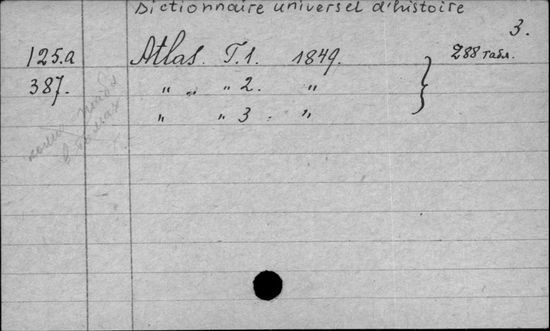 Dictionnaire universel d'histoire
3.
125.a Atlas. T. 1. 1849. } 288 табл.
387. " " " 2. "
" " 3. "